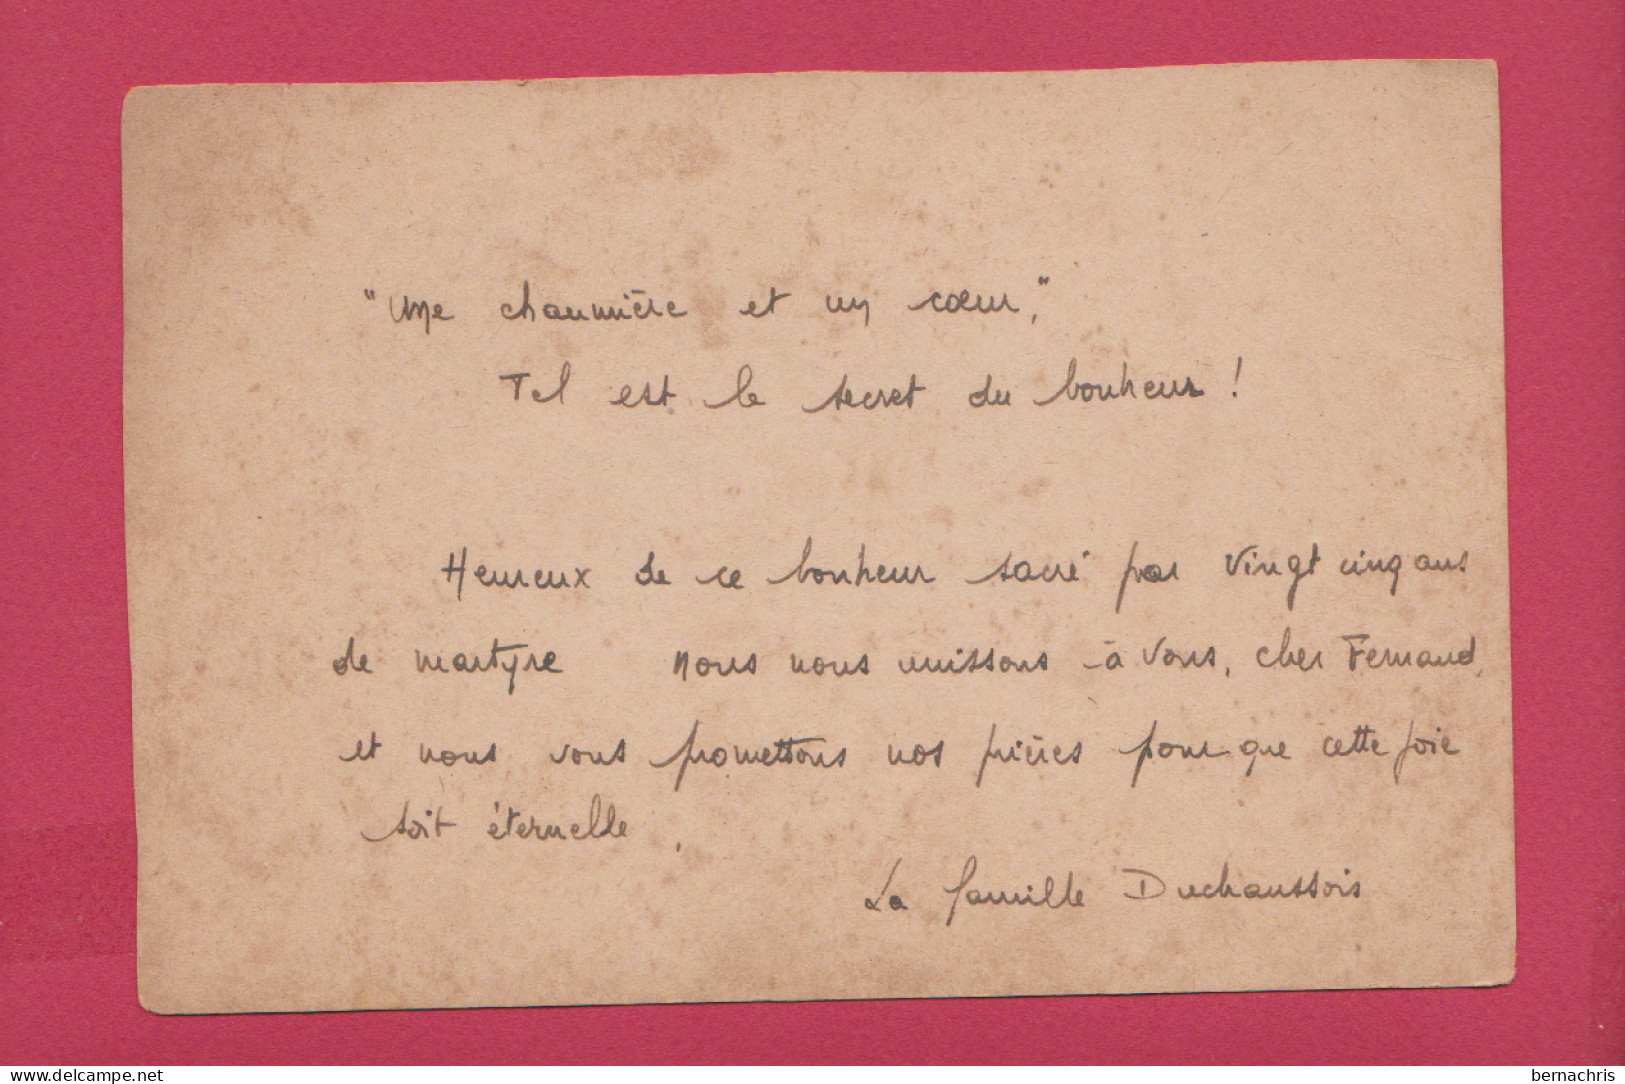 "Une chaumière et un cœur,"
Tel est le secret du bonheur !
Heureux de ce bonheur sacré par Vingt cinq ans
de martyre nous nous unissons à Vous, cher Fernand,
et nous vous promettons nos prières pour que cette joie
soit éternelle.
La famille Duchaussois
www.delcampe.net
bernachris